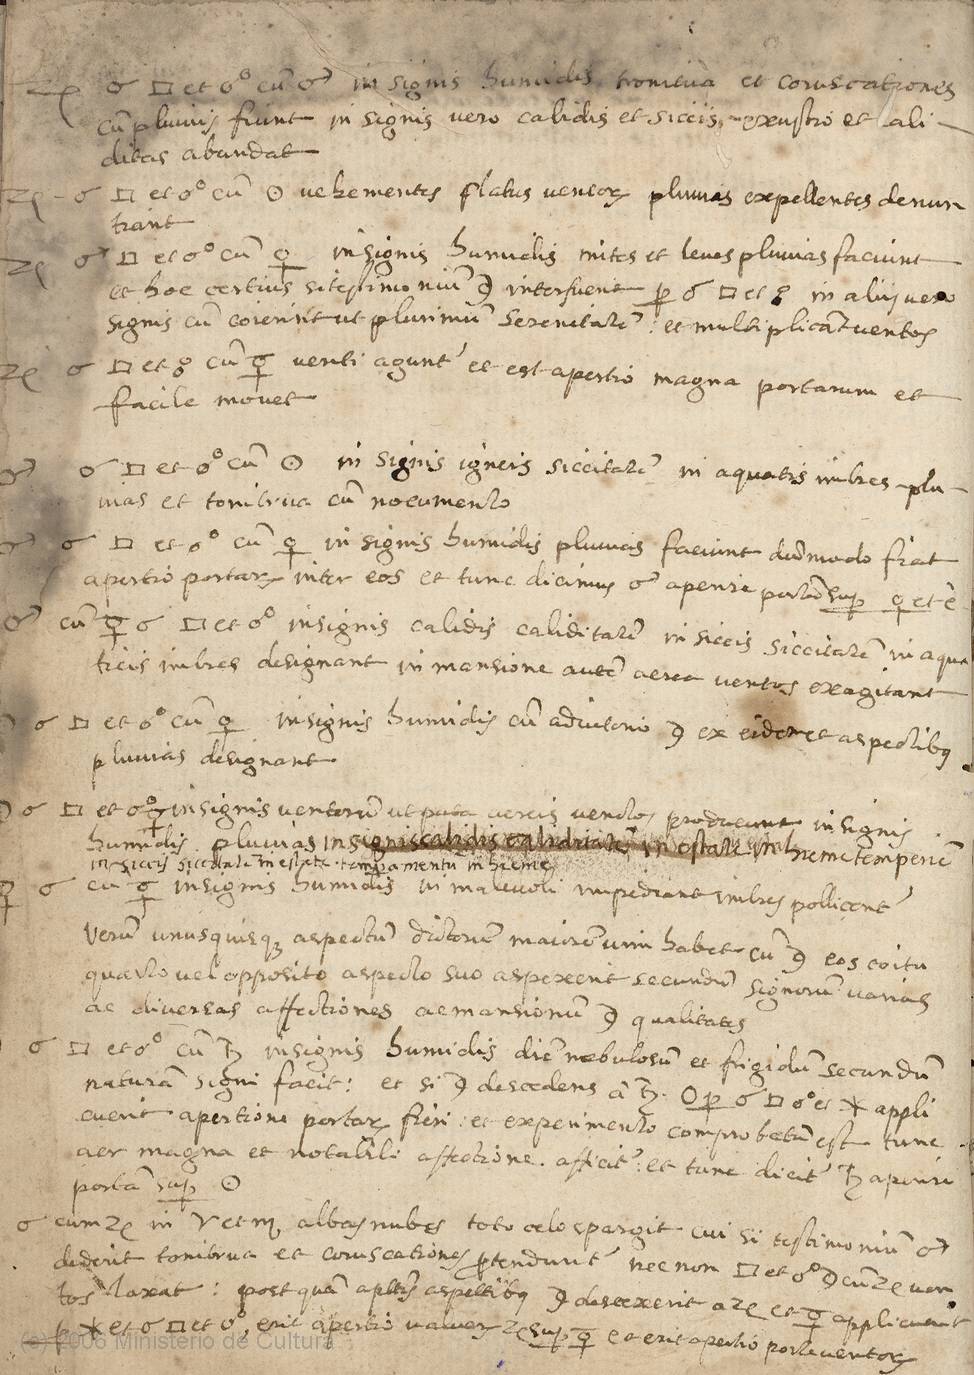 ♃ ☌ □ et ☍ cũ ♂ in signis humidis tronitua et coruscationes
cũ pluuijs fiunt in signis uero calidis et siccis, exustio et ali-
ditas abundat
♃ ☌ □ et ☍ cũ ☉ uehementes flatus uentoꝝ pluuias expellentes denun
tiant
♃ ☌ □ et ☍ cũ ♀ in signis humidis mites et leues pluuias faciunt
et hoc certius si testimoniũ ☽ interfuerit ꝑ ☌ □ et ☍ in alijs uero
signis cũ coierint ut plurimũ serenitatẽ : et multiplicãt uentos
♃ ☌ □ et ☍ cũ ☿ uenti agunt᾽ et est apertio magna portarum et
facile mouet
♂ ☌ □ et ☍ cũ ☉ in signis igneis siccitatẽ in aquatis imbres plu-
uias et tonitrua cũ nocumento
♂ ☌ □ et ☍ cũ ♀ in signis humidis pluuias faciunt dũmodo fiat
apertio portaꝝ inter eos et tunc dicimus ♂ aperire portã suꝑ ♀ et ẽ
♂ cũ ☿ ☌ □ et ☍ in signis calidis caliditatẽ in siccis siccitatẽ in aqua
ticis imbres designant in mansione autẽ aerea uentos exagitant
☌ □ et ☍ cũ ♀ in signis humidis cũ adiutorio ☽ ex eidem et aspectibꝯ
pluuias designant
☌ □ et ☍ ☿ in signis uentorũ ut puta aereis uentos producunt in signis
humidis pluuias in signis calidis caliditatẽ in estate in hieme temperiẽ
in siccis siccitatẽ in estate temperamentũ in hieme
♀ ☌ cũ ☿ in signis humidis ni maleuoli impediant imbres pollicent᾽
Verũ unusquisqꝫ aspectũ dictorũ maiorẽ uim habet cũ ☽ eos coitu
quarto uel opposito aspecto suo aspexerit secundũ signorũ varias
ac diuersas affectiones ac mansionũ ☽ qualitates
☌ □ et ☍ cũ ♄ in signis humidis diẽ nebulosũ et frigidũ secundũ
naturã signi facit : et si ☽ descedens â ♄. ☉ ꝑ ☌ □ ☍ et ⚹ appli
cuerit apertione portaꝝ fieri : et experimento comprobatũ est tunc
aer magna et notabili affectione. afficit᾽ : et tunc dicit᾽ ♄ aperire
portã suꝑ ☉
☌ cum ♃ in ♈ et ♏ albas nubes toto celo spargit cui si testimoniũ ♂
dederit tonitrua et coruscationes ꝓtendunt᾽ nec non □ et ☍ ☽ cũ ♃ uen
tos laxat : post quã aspectibꝯ ☽ discexerit a ♃ et ☿ applicuerit
ꝑ ⚹ et ☌ □ et ☍, erit apertio valuaꝝ ♃ suꝑ ☿ et erit apertio porte uentoꝝ
(c) 2006 Ministerio de Cultura